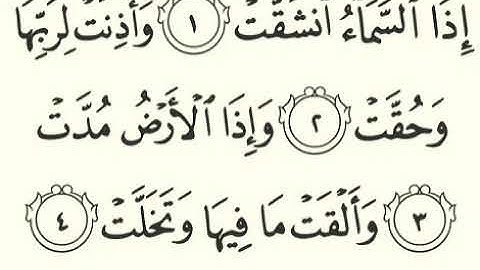 إِذَا ٱلسَّمَآءُ ٱنشَقَّتۡ ١ وَأَذِنَتۡ لِرَبِّهَا
وَحُقَّتۡ ٢ وَإِذَا ٱلۡأَرۡضُ مُدَّتۡ
٣ وَأَلۡقَتۡ مَا فِيهَا وَتَخَلَّتۡ ٤